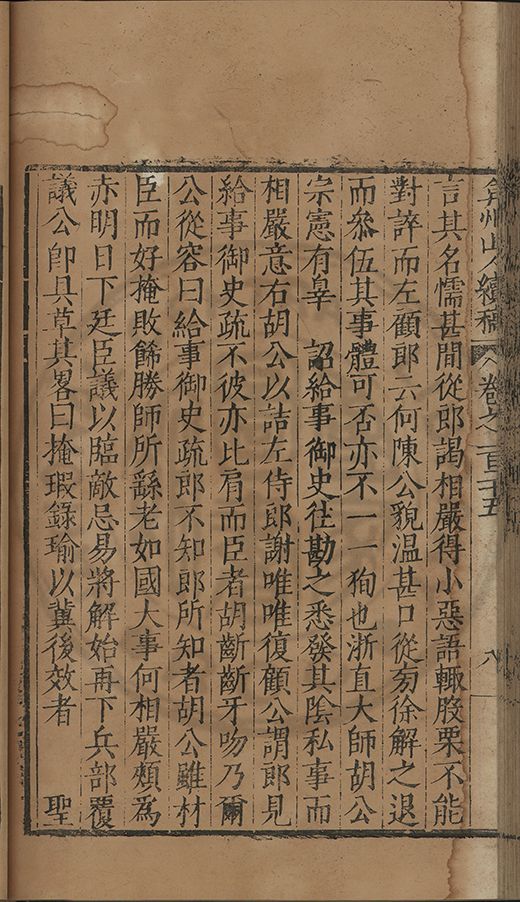 弇州山人續稿 卷之一百二十五 八
言其名懦甚間從郎謁相嚴得小惡語輒股栗不能
對誶而左顧郎云何陳公貌溫甚口從旁徐解之退
而叅伍其事體可否亦不一一狥也浙直大師胡公
宗憲有辠 詔給事御史徃勘之悉發其陰私事而
相嚴意右胡公以詰左侍郎謝唯唯復顧公謂郎見
給事御史疏不彼亦比肩而臣者胡齗齗牙吻乃爾
公從容曰給事御史疏郎不知郎所知者胡公雖材
臣而好掩敗餙勝師所繇老如國大事何相嚴頰爲
赤明日下廷臣議以臨敵忌易將解始再下兵部覆
議公卽具草其畧曰掩瑕錄瑜以冀後效者 聖